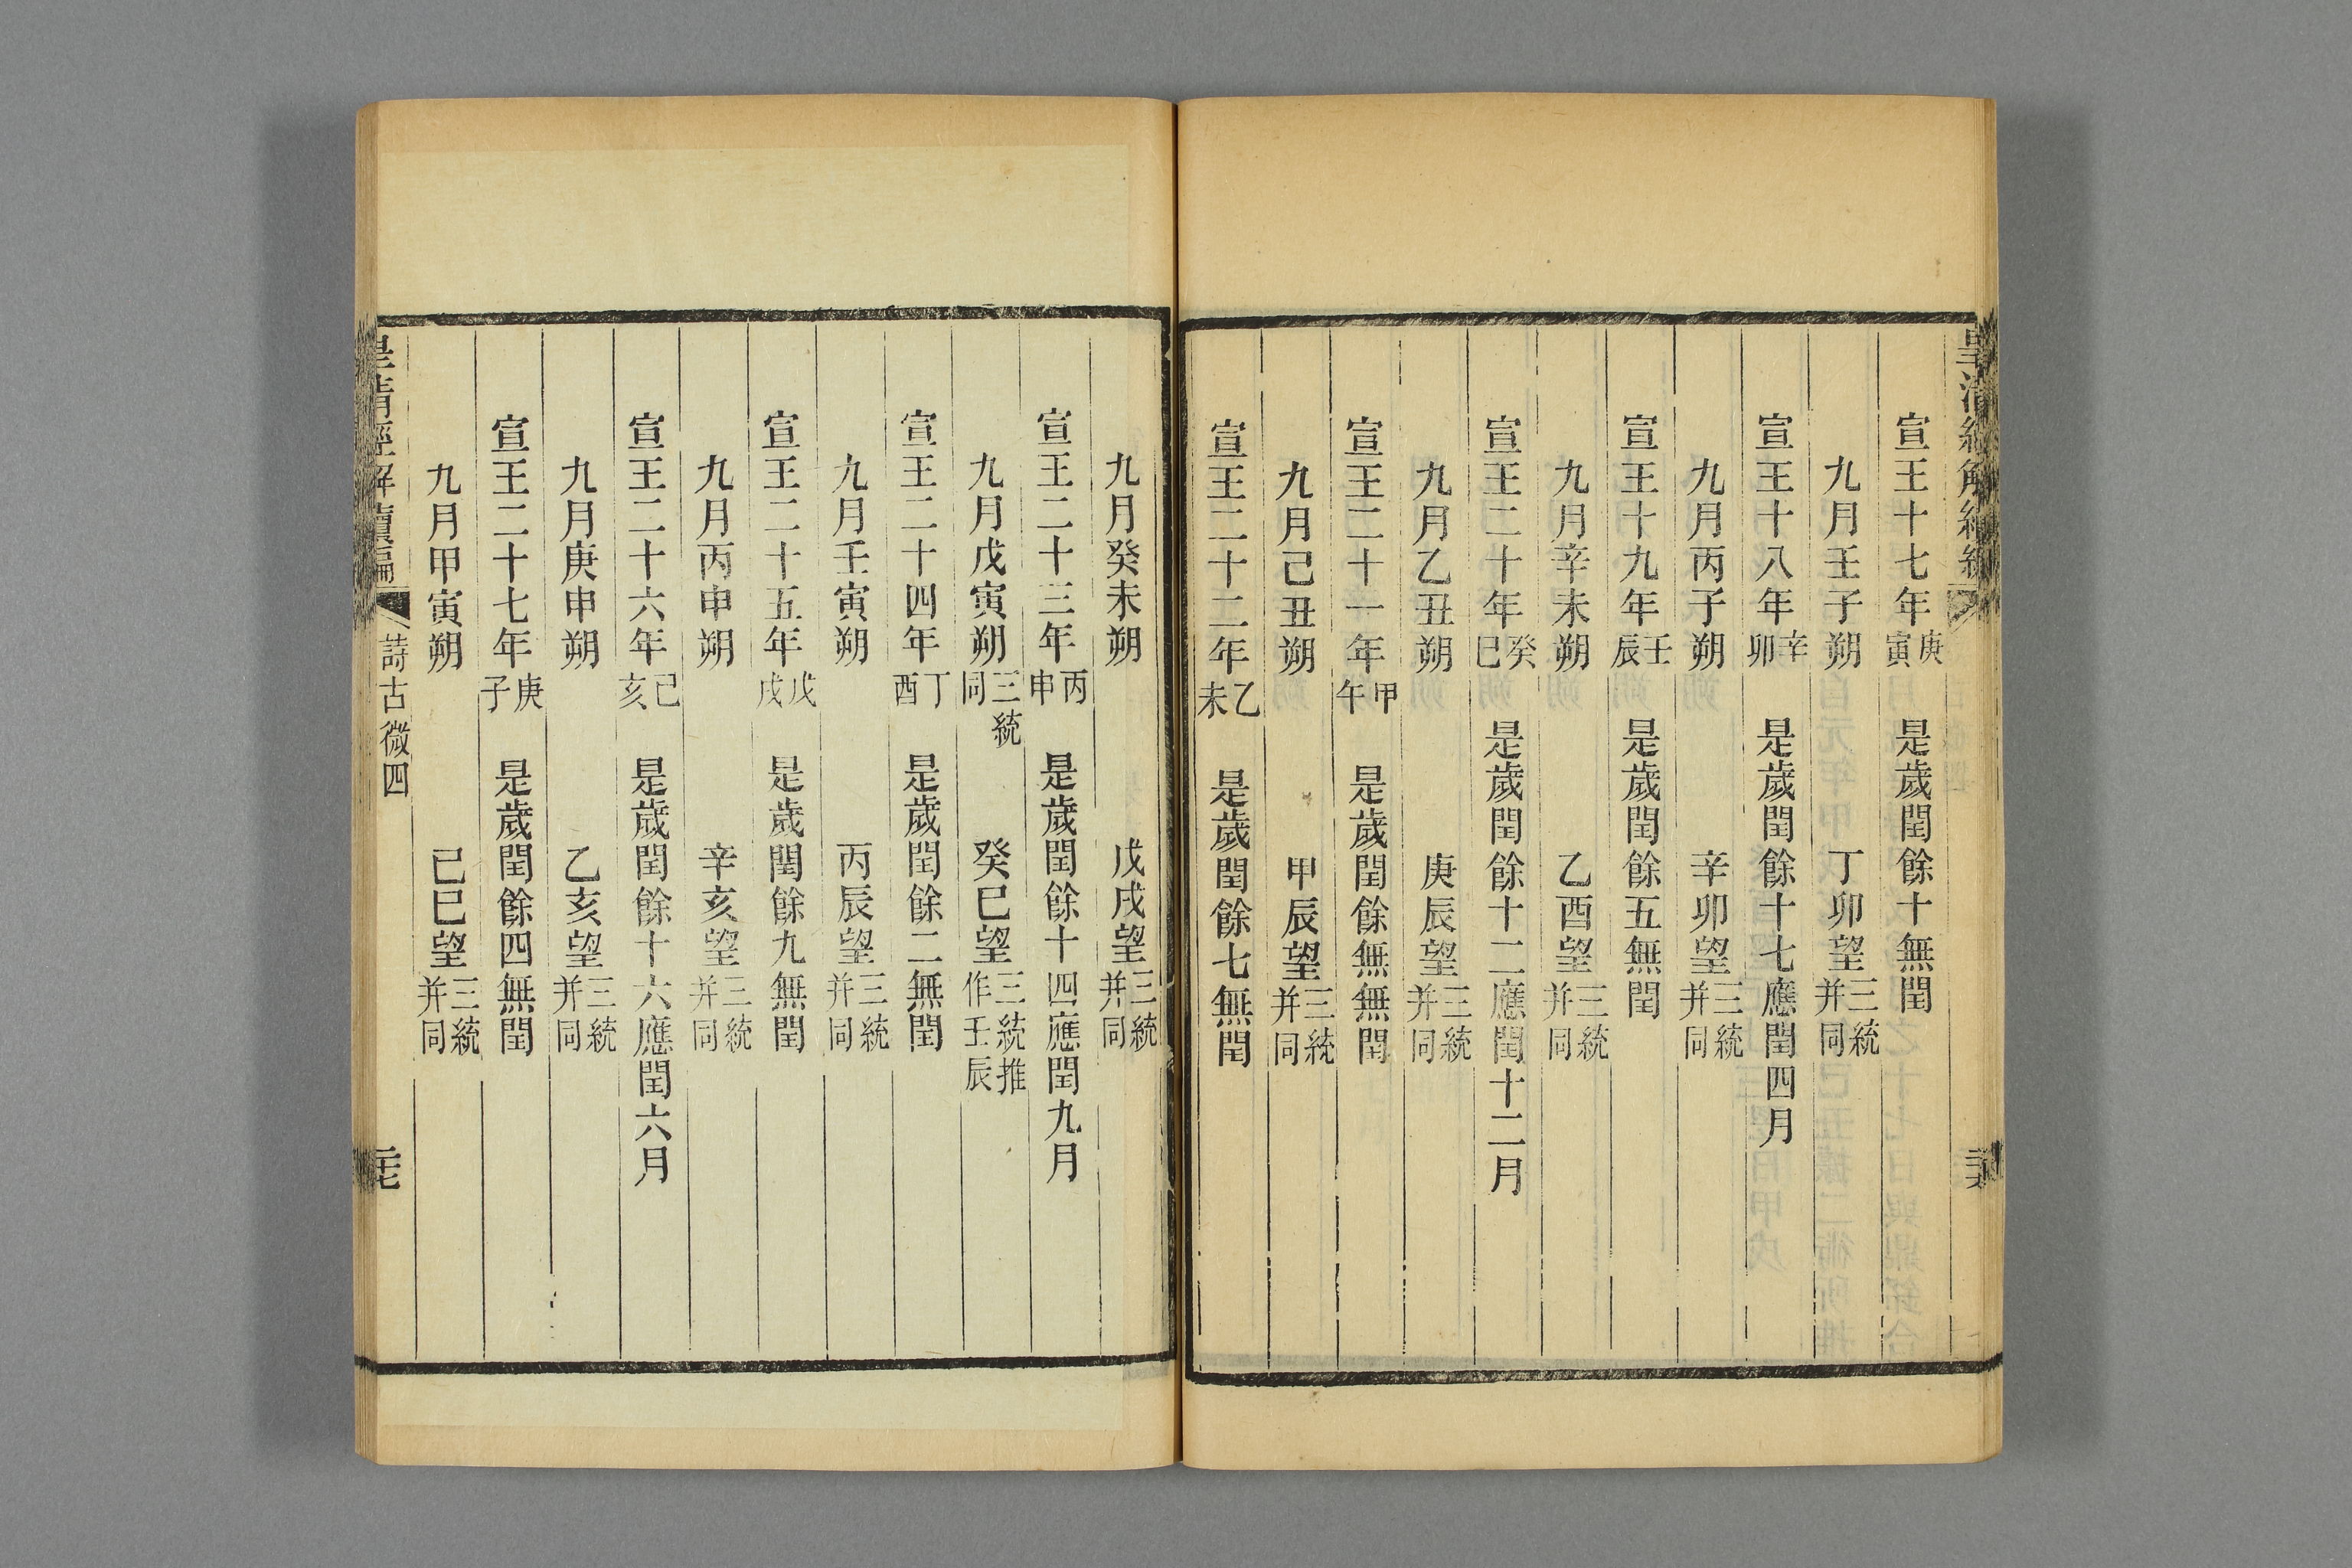 宣王十七年庚寅　是歲閏餘十無閏
九月壬子朔　丁卯望三統并同
宣王十八年辛卯　是歲閏餘十七應閏四月
九月丙子朔　辛卯望三統并同
宣王十九年壬辰　是歲閏餘五無閏
九月辛未朔　乙酉望三統并同
宣王二十年癸巳　是歲閏餘十二應閏十二月
九月乙丑朔　庚辰望三統并同
宣王二十一年甲午　是歲閏餘無無閏
九月己丑朔　甲辰望三統并同
宣王二十二年乙未　是歲閏餘七無閏
九月癸未朔　戊戌望三統并同
宣王二十三年丙申　是歲閏餘十四應閏九月
九月戊寅朔三統同　癸巳望三統推作壬辰
宣王二十四年丁酉　是歲閏餘二無閏
九月壬寅朔　丙辰望三統并同
宣王二十五年戊戌　是歲閏餘九無閏
九月丙申朔　辛亥望三統并同
宣王二十六年己亥　是歲閏餘十六應閏六月
九月庚申朔　乙亥望三統并同
宣王二十七年庚子　是歲閏餘四無閏
九月甲寅朔　己巳望三統并同
皇清經解續編　詩古微四